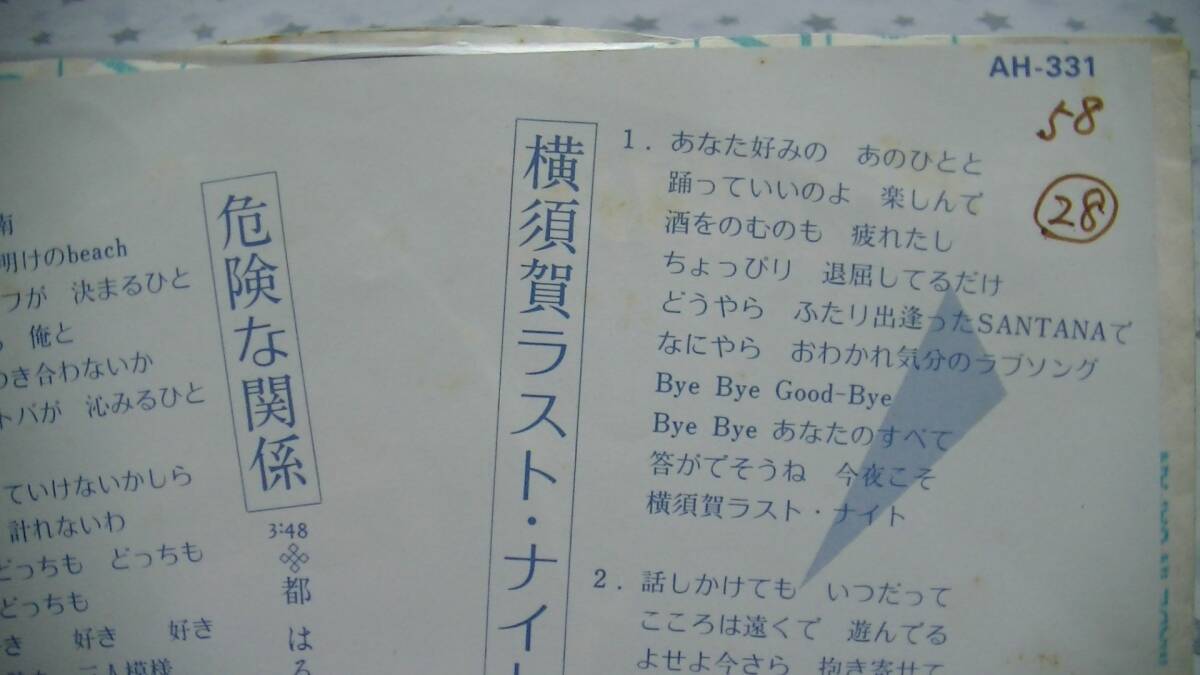 AH-331
58
28
横須賀ラスト・ナイ
1. あなた好みの　あのひとと
踊っていいのよ　楽しんで
酒をのむのも　疲れたし
ちょっぴり　退屈してるだけ
どうやら　ふたり出逢ったSANTANAで
なにやら　おわかれ気分のラブソング
Bye Bye Good-Bye
Bye Bye あなたのすべて
答がでそうね　今夜こそ
横須賀ラスト・ナイト
2. 話しかけても　いつだって
こころは遠くで　遊んでる
よせよ今さら　抱き寄せて
危険な関係
3:48
都　はる
南
明けのbeach
フが　決まるひと
俺と
き合わないか
トバが　沁みるひと
ていけないかしら
計れないわ
どっちも　どっちも
どっちも
き　好き　好き
二人模様